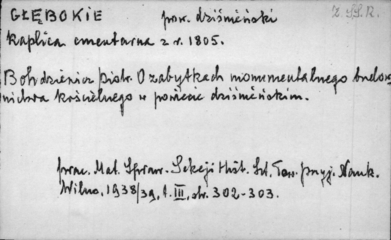 GŁĘBOKIE pow. dziśnieński Z.S.S.R.
Kaplica cmentarna z r. 1805.
Bohdziewicz Piotr. O zabytkach monumentalnego budow
nictwa kościelnego w powiecie dziśnieńskim.
Prac. Mat. Spraw. Sekcji Hist. Szt. Tow. Przyj. Nauk.
Wilno, 1938/39, t. III, str. 302-303.